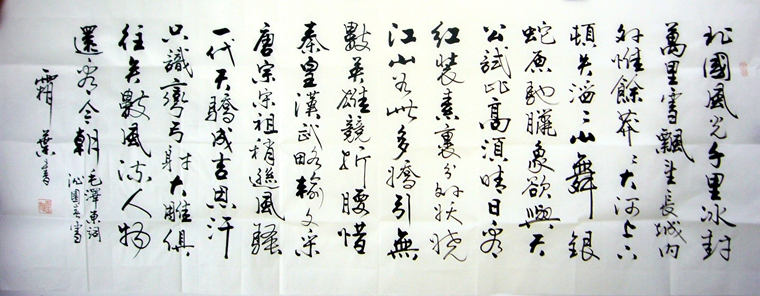 北國風光千里冰封
萬里雪飄望長城內
外惟餘莽〻大河上下
頓失滔〻山舞銀
蛇原馳臘象欲與天
公試比高須晴日看
紅裝素裹分外妖嬈
江山如此多嬌引無
數英雄競折腰惜
秦皇漢武略輸文采
唐宗宋祖稍遜風騷
一代天驕成吉思汗
只識彎弓射大雕俱
往矣數風流人物
還看今朝
毛澤東詞
沁園春雪
霜葉書